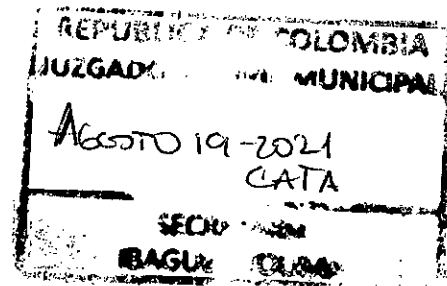 REPUBLICA DE COLOMBIA
JUZGADO MUNICIPAL
AGOSTO 19-2021
CATA
SECRETARIA
IBAGUE TOLIMA